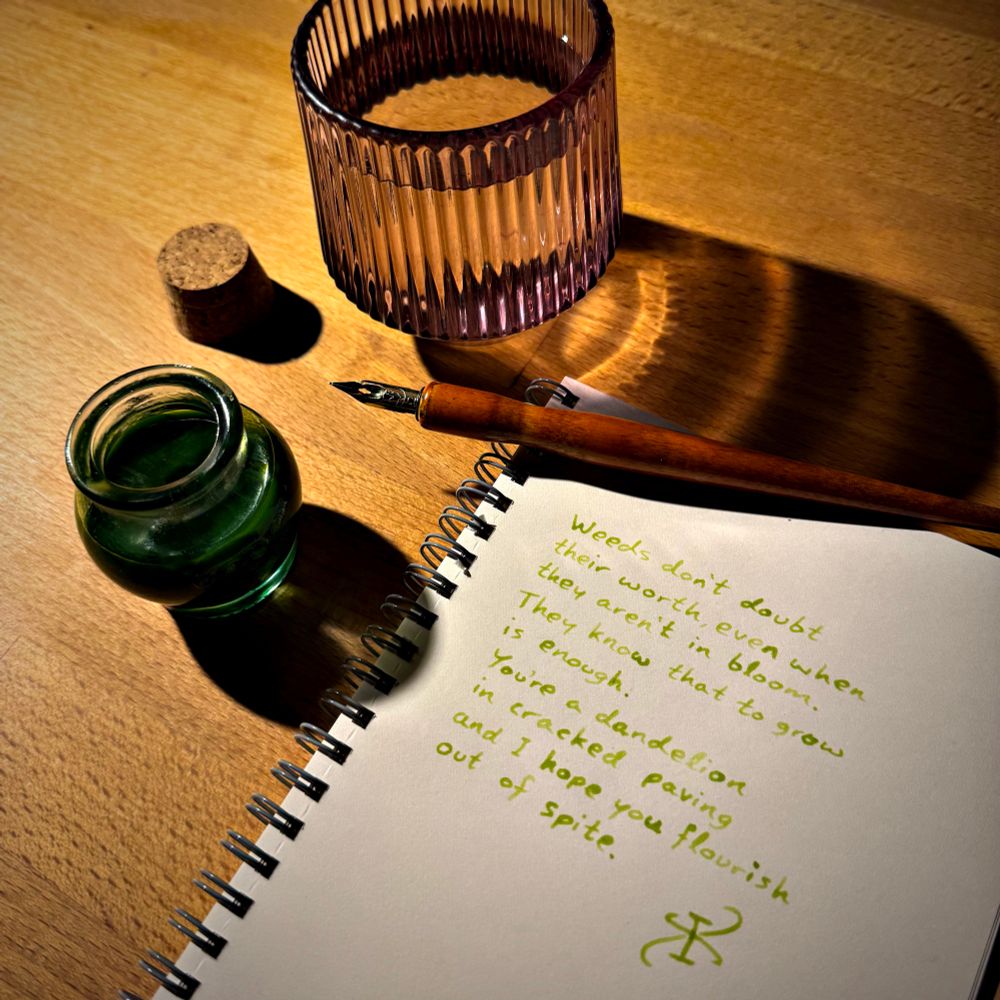 Weeds don't doubt
their worth, even when
they aren't in bloom.
They know that to grow
is enough.
You're a dandelion
in cracked paving
and I hope you flourish
out of spite.